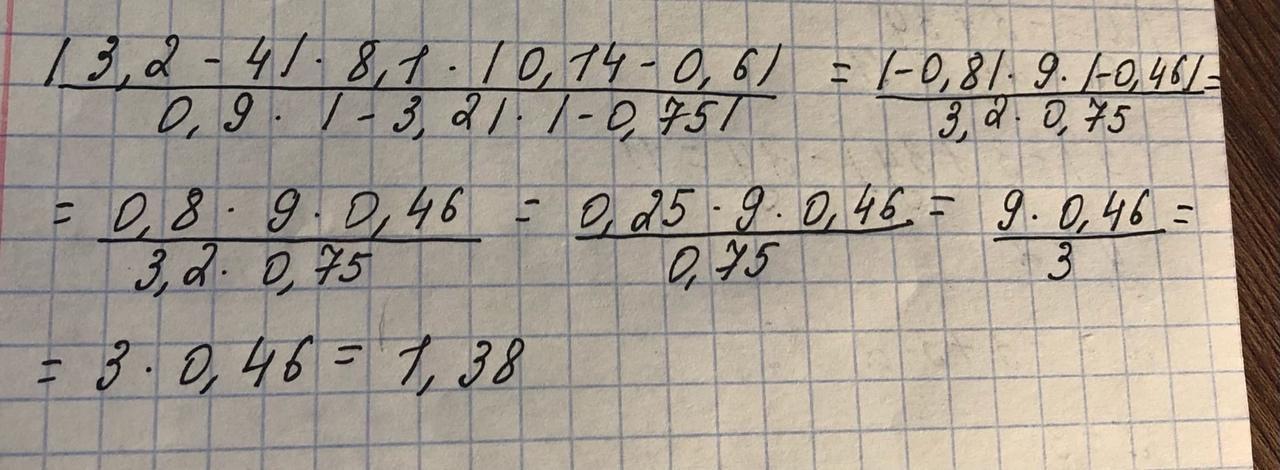 |3,2 - 4| · 8,1 · |0,14 - 0,6| / 0,9 · |-3,2| · |-0,75| = |-0,8| · 9 · |-0,46| / 3,2 · 0,75 =
= 0,8 · 9 · 0,46 / 3,2 · 0,75 = 0,25 · 9 · 0,46 / 0,75 = 9 · 0,46 / 3 =
= 3 · 0,46 = 1,38